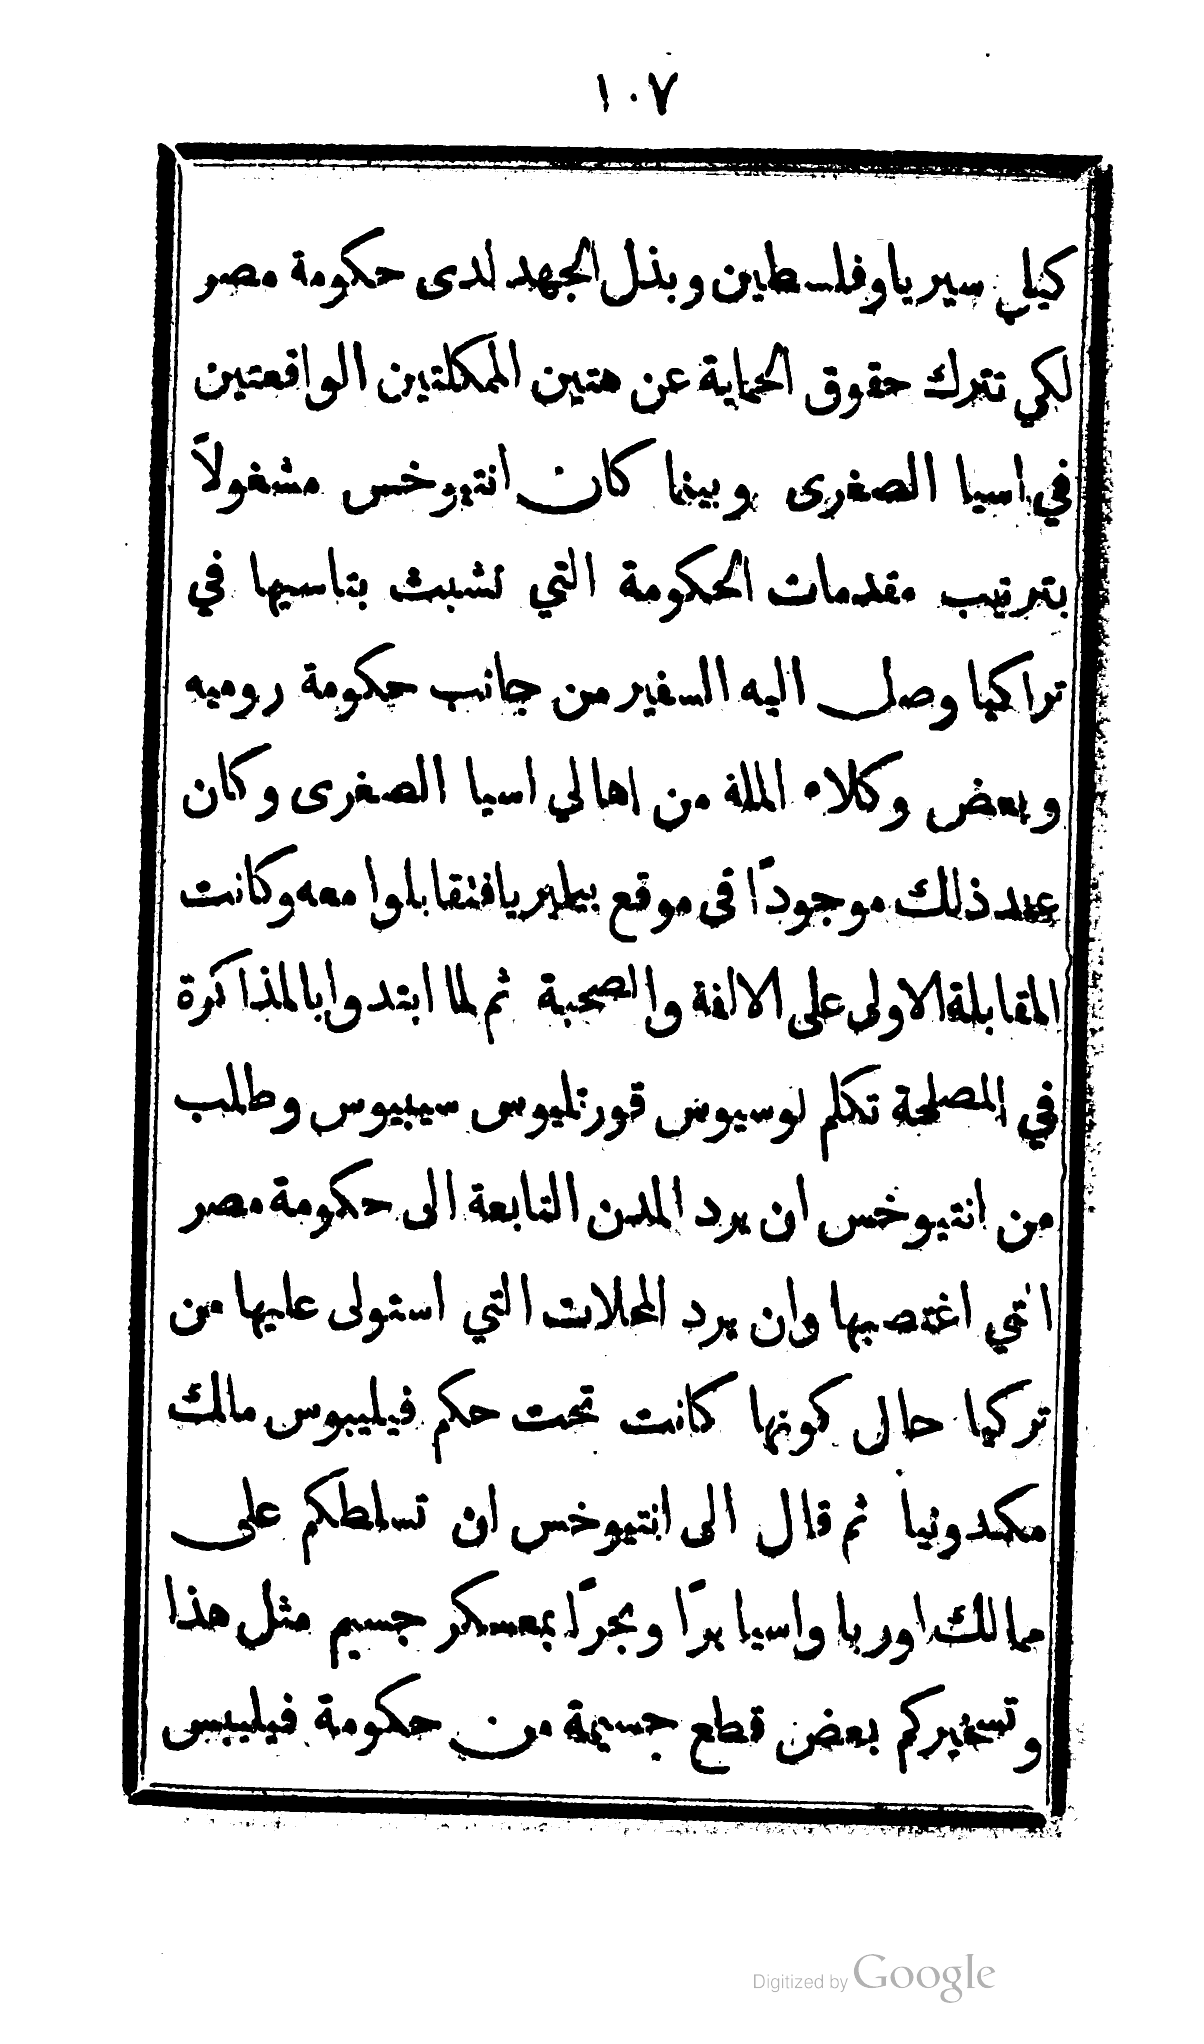 ١٠٧
كيلي سيريا وفلسطين وبذل الجهد لدى حكومة مصر
لكي تترك حقوق الحماية عن هتين الممكلتين الواقعتين
في اسيا الصغرى وبينما كان انتيوخس مشغولاً
بترتيب مقدمات الحكومة التي تشبث بتاسيها في
تراكيا وصل اليه السفير من جانب حكومة روميه
وبعض وكلاء الملة من اهالي اسيا الصغرى وكان
عند ذلك موجودًا في موقع بيليريا فتقابلوا معه وكانت
المقابلة الاولى على الالفة والصحبة ثم لما ابتدوا بالمذاكرة
في المصلحة تكلم لوسيوس قورتليوس سيبيوس وطلب
من انتيوخس ان يرد المدن التابعة الى حكومة مصر
التي اغتصبها وان يرد المحلات التي استولى عليها من
تركيا حال كونها كانت تحت حكم فيليبوس مالك
مكدونيا ثم قال الى انتيوخس ان تسلطكم على
ممالك اوربا واسيا برًا وبحرًا بمعسكر جسيم مثل هذا
وتسخيركم بعض قطع جسيمة من حكومة فيليبس
Digitized by Google